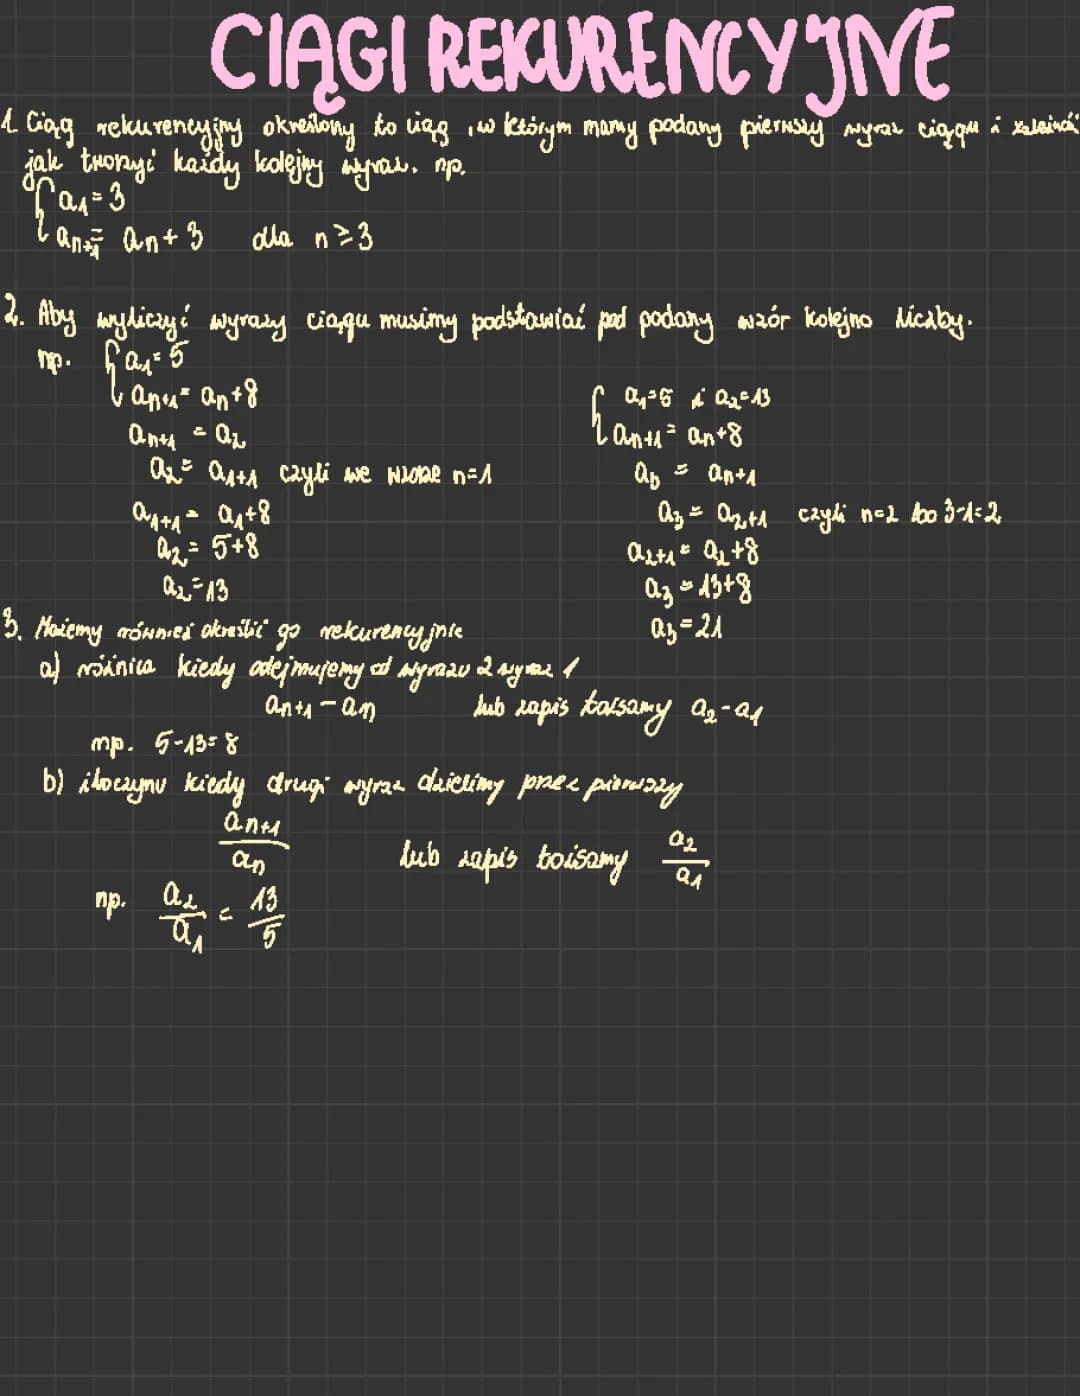 CIĄGI REKURENCYJNE
1. Ciąg rekurencyjny określony to ciąg, w którym mamy podany pierwszy wyraz ciągu i zależność
jak tworzyć każdy kolejny wyraz. np.
{ a₁ = 3
aₙ₊₁ = aₙ + 3 dla n ≥ 3
2. Aby wyliczyć wyrazy ciągu musimy podstawiać pod podany wzór kolejno liczby.
np. { a₁ = 5
aₙ₊₁ = aₙ + 8
aₙ₊₁ = a₂
a₂ = a₁₊₁ czyli we wzorze n=1
a₁₊₁ = a₁+8
a₂ = 5+8
a₂ = 13
{ a₁=5 i a₂=13
aₙ₊₁ = aₙ+8
a₃ = aₙ₊₁
a₃ = a₂₊₁ czyli n=2 bo 3-1=2
a₂₊₁ = a₂+8
a₃ = 13+8
a₃ = 21
3. Możemy również określić go rekurencyjnie
a) różnica kiedy odejmujemy od wyrazu 2 wyraz 1
aₙ₊₁ - aₙ lub zapis tożsamy a₂-a₁
np. 5-13=8
b) iloczynu kiedy drugi wyraz dzielimy przez pierwszy
aₙ₊₁/aₙ lub zapis tożsamy a₂/a₁
np. a₂/a₁ = 13/5